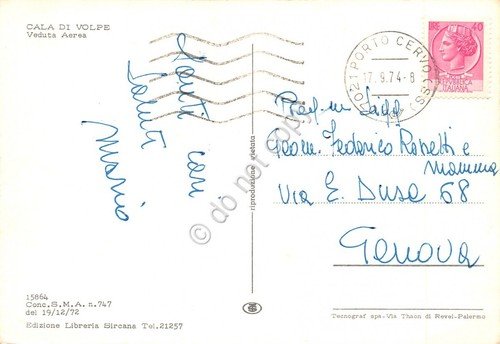 CALA DI VOLPE
Veduta Aerea
Tanti cari
saluti
Mario
07021 PORTO CERVO (SS)
17.9.74-8
40
ITALIANA
Geom. Federico Rosetti e
mamma
Via E. Duse 68
Genova
riproduzione vietata
db net copy
15864
Conc. S.M.A. n.747
del 19/12/72
Edizione Libreria Sircana Tel. 21257
Tecnograf spa - Via Thaon di Revel - Palermo